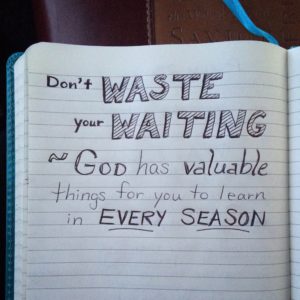 Don't WASTE
your WAITING
~ GOD has valuable
things for you to learn
in EVERY SEASON